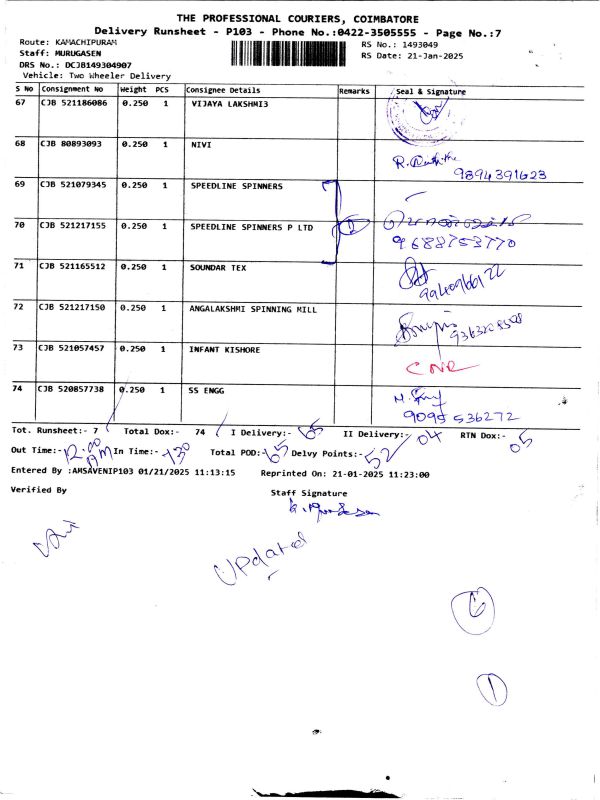 THE PROFESSIONAL COURIERS, COIMBATORE
Delivery Runsheet - P103 - Phone No.:0422-3505555 - Page No.:7
Route: KAMACHIPURAM
RS No.: 1493049
Staff: MURUGASEN
RS Date: 21-Jan-2025
DRS No.: DCJB149304907
Vehicle: Two Wheeler Delivery
S No Consignment No Weight PCS Consignee Details Remarks Seal & Signature
67 CJB 521186086 0.250 1 VIJAYA LAKSHMI3
68 CJB 80893093 0.250 1 NIVI
9894391623
69 CJB 521079345 0.250 1 SPEEDLINE SPINNERS
70 CJB 521217155 0.250 1 SPEEDLINE SPINNERS P LTD 1
9688753770
71 CJB 521165512 0.250 1 SOUNDAR TEX
72 CJB 521217150 0.250 1 ANGALAKSHMI SPINNING MILL
73 CJB 521057457 0.250 1 INFANT KISHORE
CNR
74 CJB 520857738 0.250 1 SS ENGG
9095 536272
Tot. Runsheet:- 7 Total Dox:- 74 I Delivery:- 65 II Delivery:- 04 RTN Dox:- 05
Out Time:- 12.00 PM In Time:- 7.30 Total POD:- 65 Delvy Points:- 52
Entered By :AMSAVENIP103 01/21/2025 11:13:15 Reprinted On: 21-01-2025 11:23:00
Verified By
Staff Signature
Updated
6
1